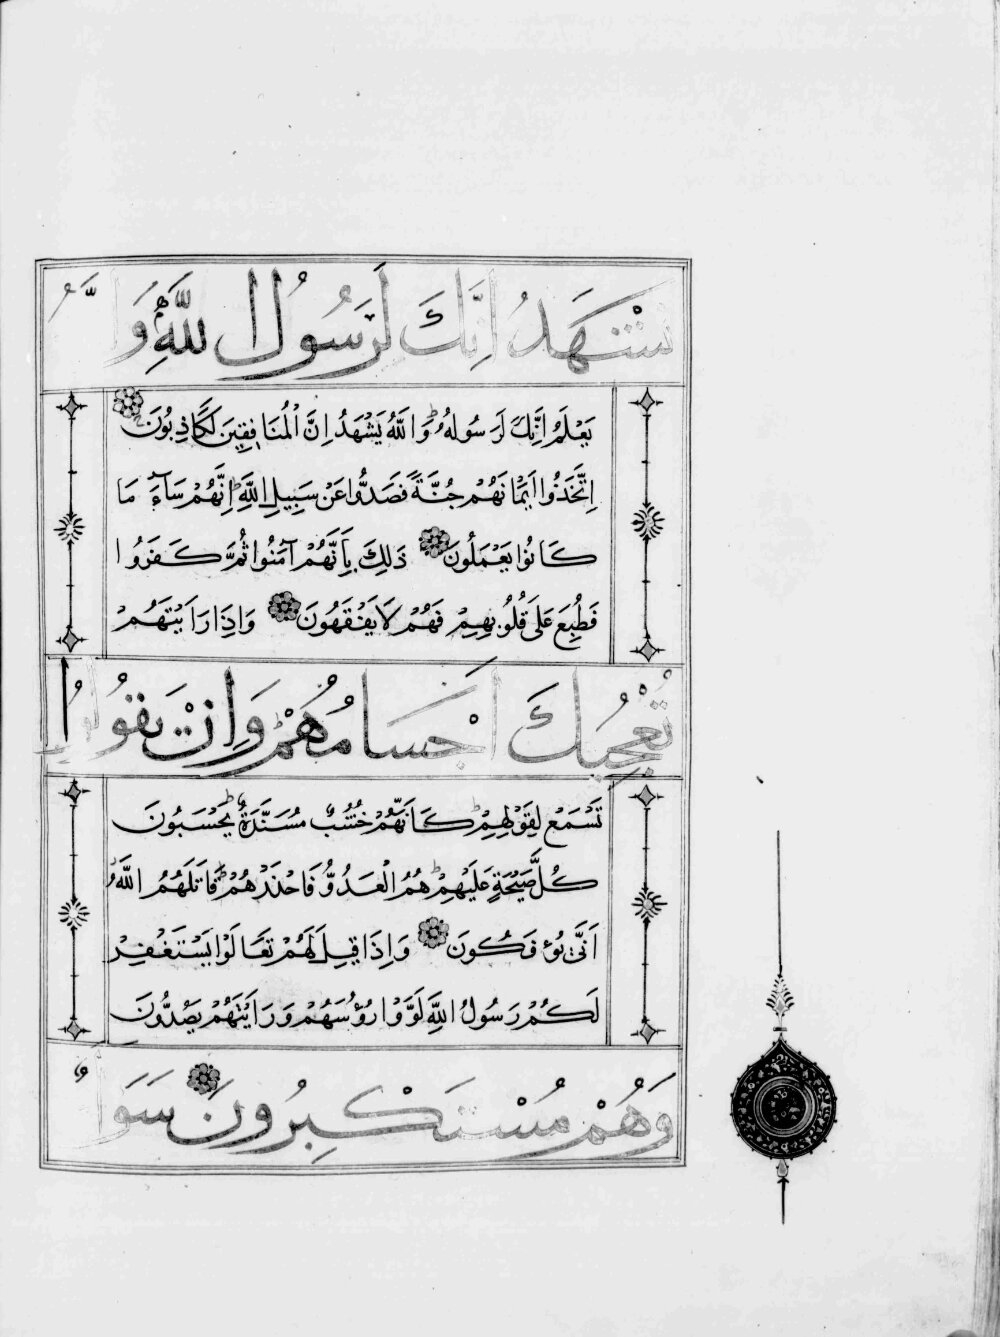 نَشْهَدُ اِنَّكَ لَرَسُولُ اللّٰهِ وَاللّٰهُ
يَعْلَمُ اِنَّكَ لَرَسُولُهُ وَاللّٰهُ يَشْهَدُ اِنَّ الْمُنَافِقِينَ لَكَاذِبُونَ
اِتَّخَذُوا اَيْمَانَهُمْ جُنَّةً فَصَدُّوا عَنْ سَبِيلِ اللّٰهِ اِنَّهُمْ سَآءَ مَا
كَانُوا يَعْمَلُونَ ذَلِكَ بِاَنَّهُمْ آمَنُوا ثُمَّ كَفَرُوا
فَطُبِعَ عَلَى قُلُوبِهِمْ فَهُمْ لَا يَفْقَهُونَ وَاِذَا رَاَيْتَهُمْ
تُعْجِبُكَ اَجْسَامُهُمْ وَاِنْ يَقُولُوا
تَسْمَعْ لِقَوْلِهِمْ كَاَنَّهُمْ خُشُبٌ مُسَنَّدَةٌ يَحْسَبُونَ
كُلَّ صَيْحَةٍ عَلَيْهِمْ هُمُ الْعَدُوُّ فَاحْذَرْهُمْ قَاتَلَهُمُ اللّٰهُ
اَنَّى يُؤْفَكُونَ وَاِذَا قِيلَ لَهُمْ تَعَالَوْا يَسْتَغْفِرْ
لَكُمْ رَسُولُ اللّٰهِ لَوَّوْا رُؤُسَهُمْ وَرَاَيْتَهُمْ يَصُدُّونَ
وَهُمْ مُسْتَكْبِرُونَ سَوَاءٌ